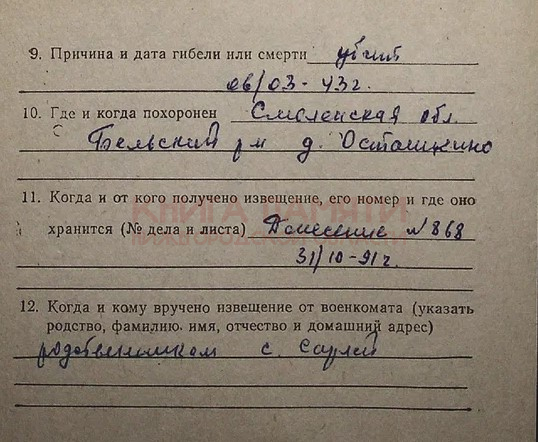 9. Причина и дата гибели или смерти убит
06/03-43г.
10. Где и когда похоронен Смоленская обл.
Бельский р-н д. Осташкино
11. Когда и от кого получено извещение, его номер и где оно
КНИГА ПАМЯТИ
хранится (№ дела и листа) Донесение №868
НИЖЕГОРОДСКОЙ ОБЛАСТИ
31/10-91г.
12. Когда и кому вручено извещение от военкомата (указать
родство, фамилию, имя, отчество и домашний адрес)
родственникам с. Сарлей